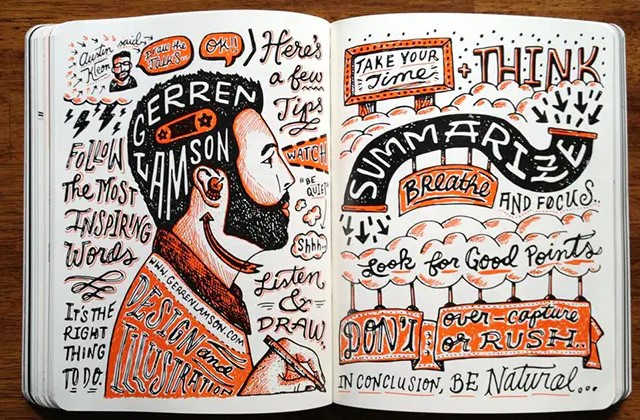 Austin
Kleon
said
Draw the
Talks...
OK!!
Here's
a few
Tips
GERREN
LAMSON
WATCH
"BE
QUIET"
Shhh...
FOLLOW
The MOST
INSPIRING
Words
IT'S THE
RIGHT
THING
TO DO.
WWW.GERRENLAMSON.COM
DESIGN and
ILLUSTRATION
Listen
&
DRAW..
TAKE YOUR
Time
+ THINK
SUMMARIZE
Breathe
AND FOCUS..
Look for Good Points
DON'T
over-capture
or RUSH..
IN CONCLUSION, BE Natural...